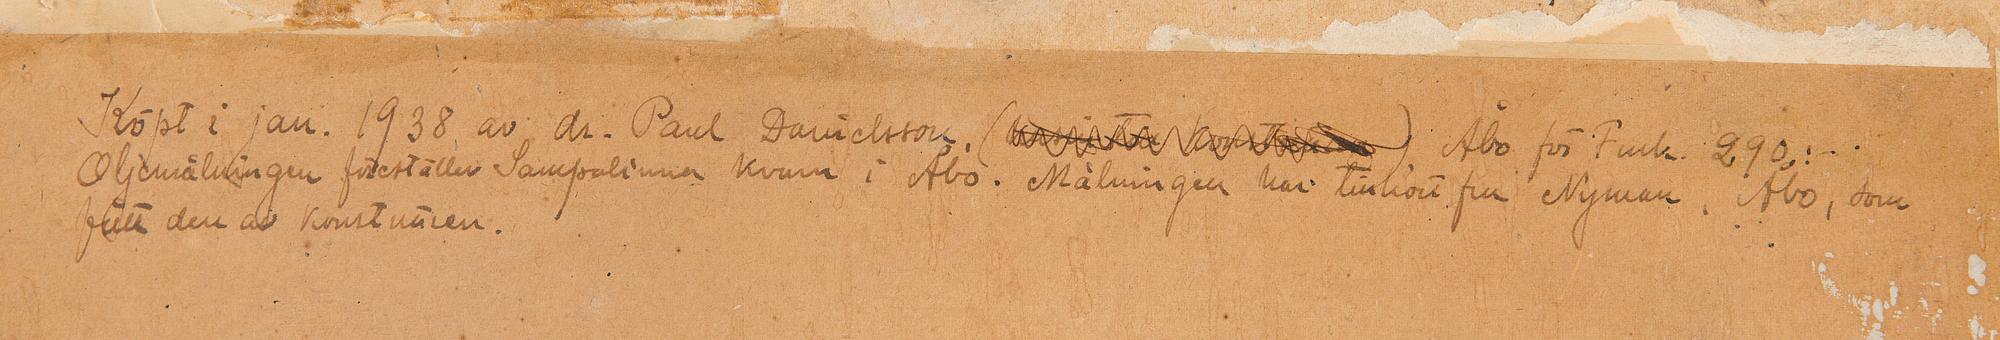 Köpt i jan. 1938 av dr. Paul Danielsson, ( ) Åbo för Fmk. 290:-.
Oljemålningen föreställer Sampalinna kvarn i Åbo. Målningen har tillhört fru Nyman, Åbo, som
fått den av konstnären.